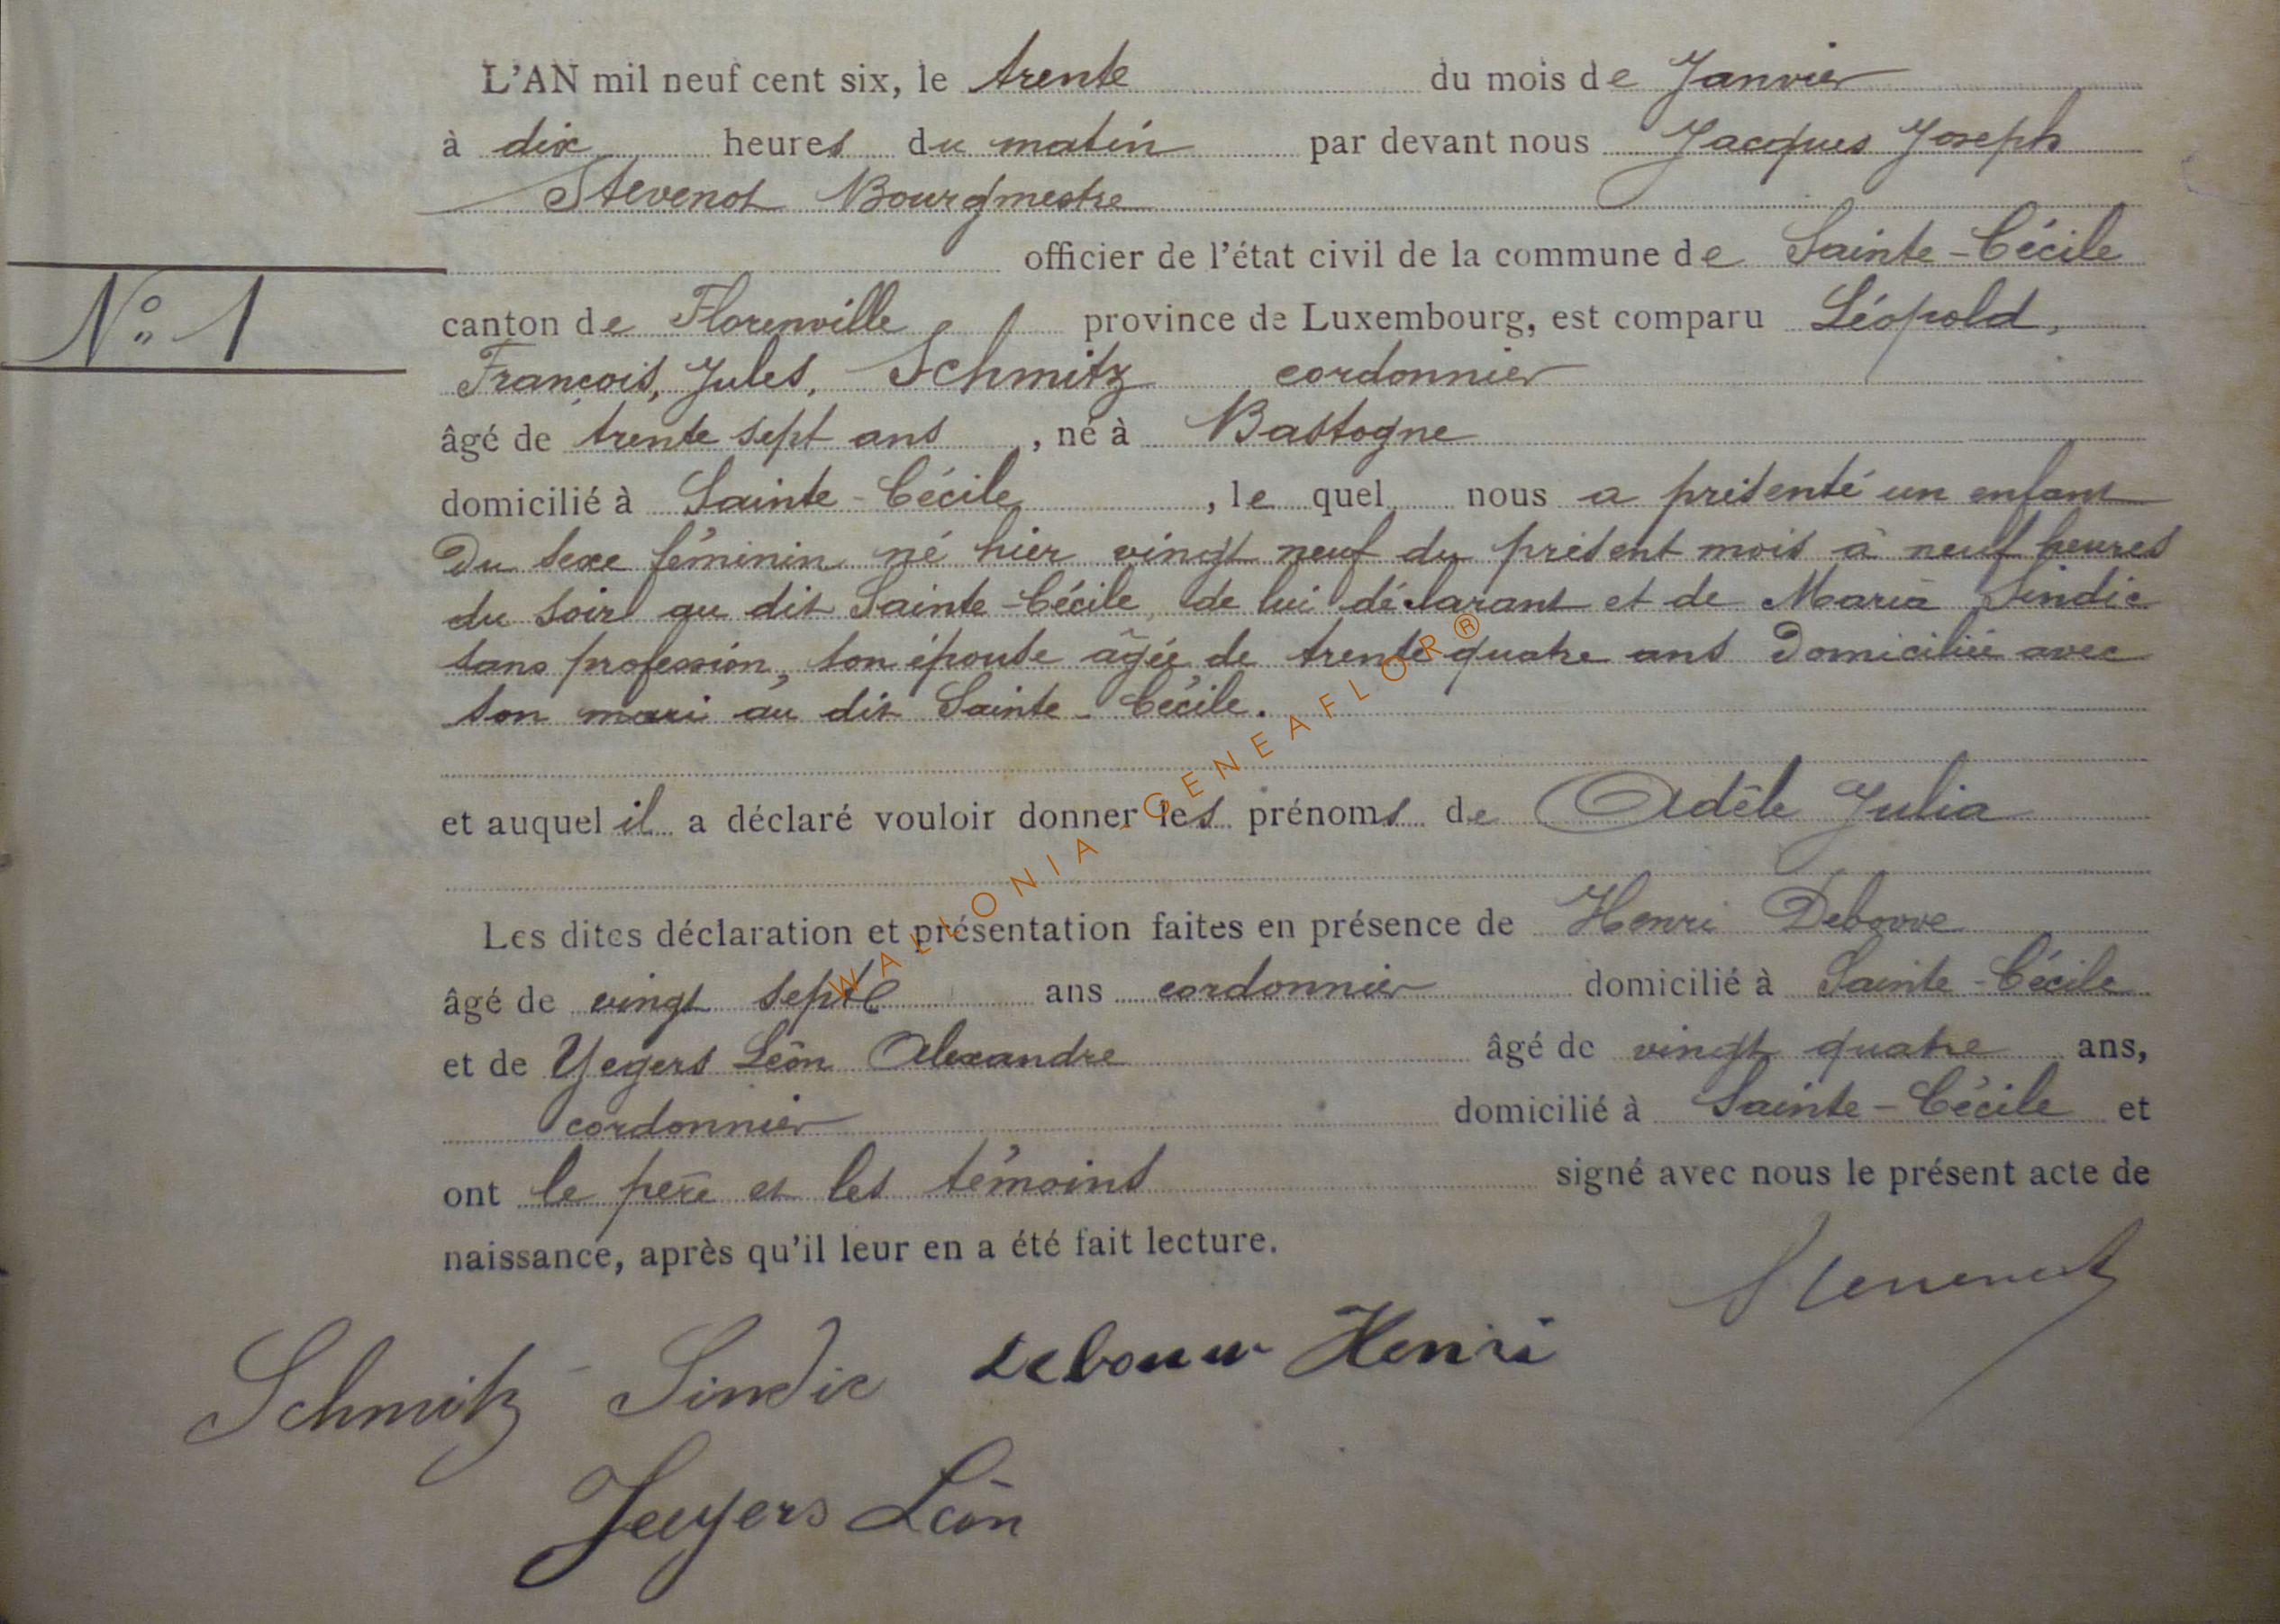 L'AN mil neuf cent six, le trente du mois de Janvier
à dix heures du matin par devant nous Jacques Joseph
Stevenot Bourgmestre
officier de l'état civil de la commune de Sainte-Cécile
N° 1
canton de Florenville province de Luxembourg, est comparu Léopold,
François, Jules, Schmitz cordonnier
âgé de trente sept ans, né à Bastogne
domicilié à Sainte-Cécile, le quel nous a présenté un enfant
Du sexe féminin né hier vingt neuf du présent mois à neuf heures
du soir au dit Sainte-Cécile, de lui déclarant et de Maria Sindic
sans profession, son épouse âgée de trente quatre ans Domiciliée avec
son mari au dit Sainte-Cécile.
et auquel il a déclaré vouloir donner les prénoms de Adèle Julia
Les dites déclaration et présentation faites en présence de Henri Debouve
âgé de vingt sept ans cordonnier domicilié à Sainte-Cécile
et de Yegers Léon Alexandre âgé de vingt quatre ans,
cordonnier domicilié à Sainte-Cécile et
ont le père et les témoins signé avec nous le présent acte de
naissance, après qu'il leur en a été fait lecture.
Stevenot
Schmitz - Sindic Henri
Léon
WALLONIA-GENEAFLOR®